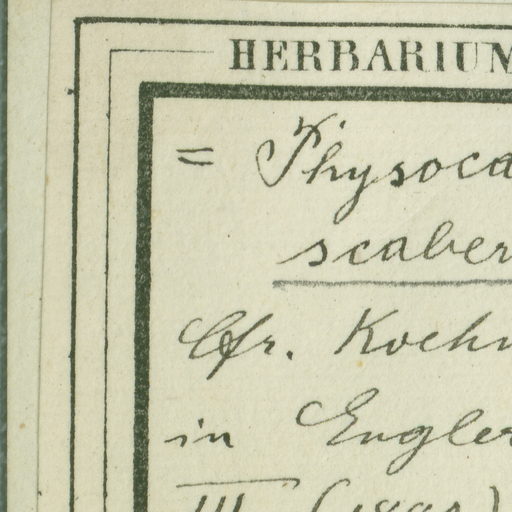 HERBARIUM
= Physoca
scaber
Cfr. Koehn
in Engler
III